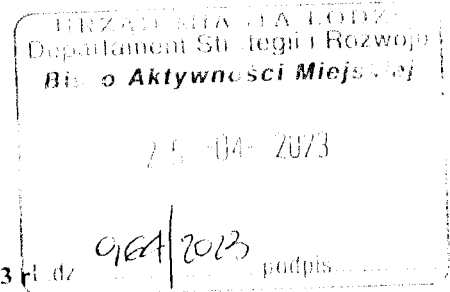 URZĄD MIASTA ŁODZI
Departament Strategii i Rozwoju
Biuro Aktywności Miejskiej
25 -04- 2023
/2023
3 r
podpis